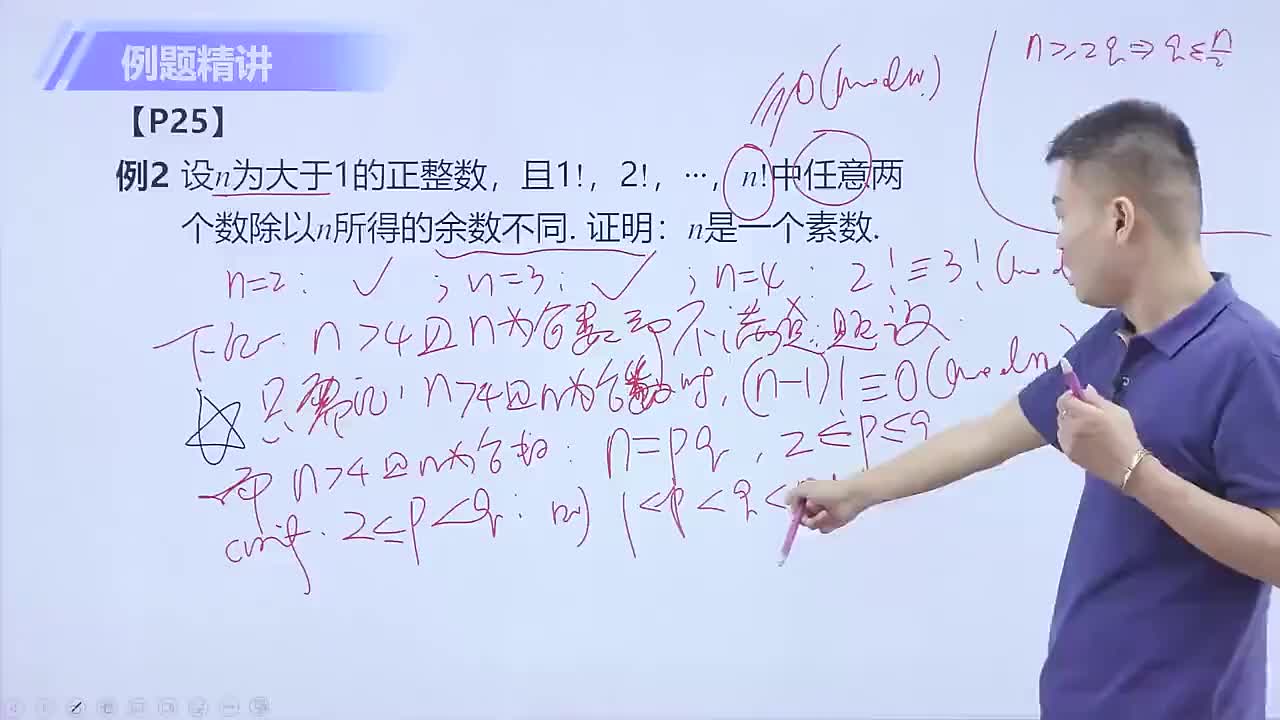 例题精讲
n≥2q⇒q≤n/2
【P25】
≡0(mod n)
例2 设n为大于1的正整数，且1!，2!，…，n!中任意两
个数除以n所得的余数不同. 证明：n是一个素数.
n=2: ✓ ; n=3: ✓ ; n=4: 2!≡3!(mod
下证: n>4且n为合数时不满足题设.
只需证: n>4且n为合数时, (n-1)!≡0(mod n)
n>4且n为合数: n=pq, 2≤p≤q
case1. 2≤p<q: 则 1<p<q<